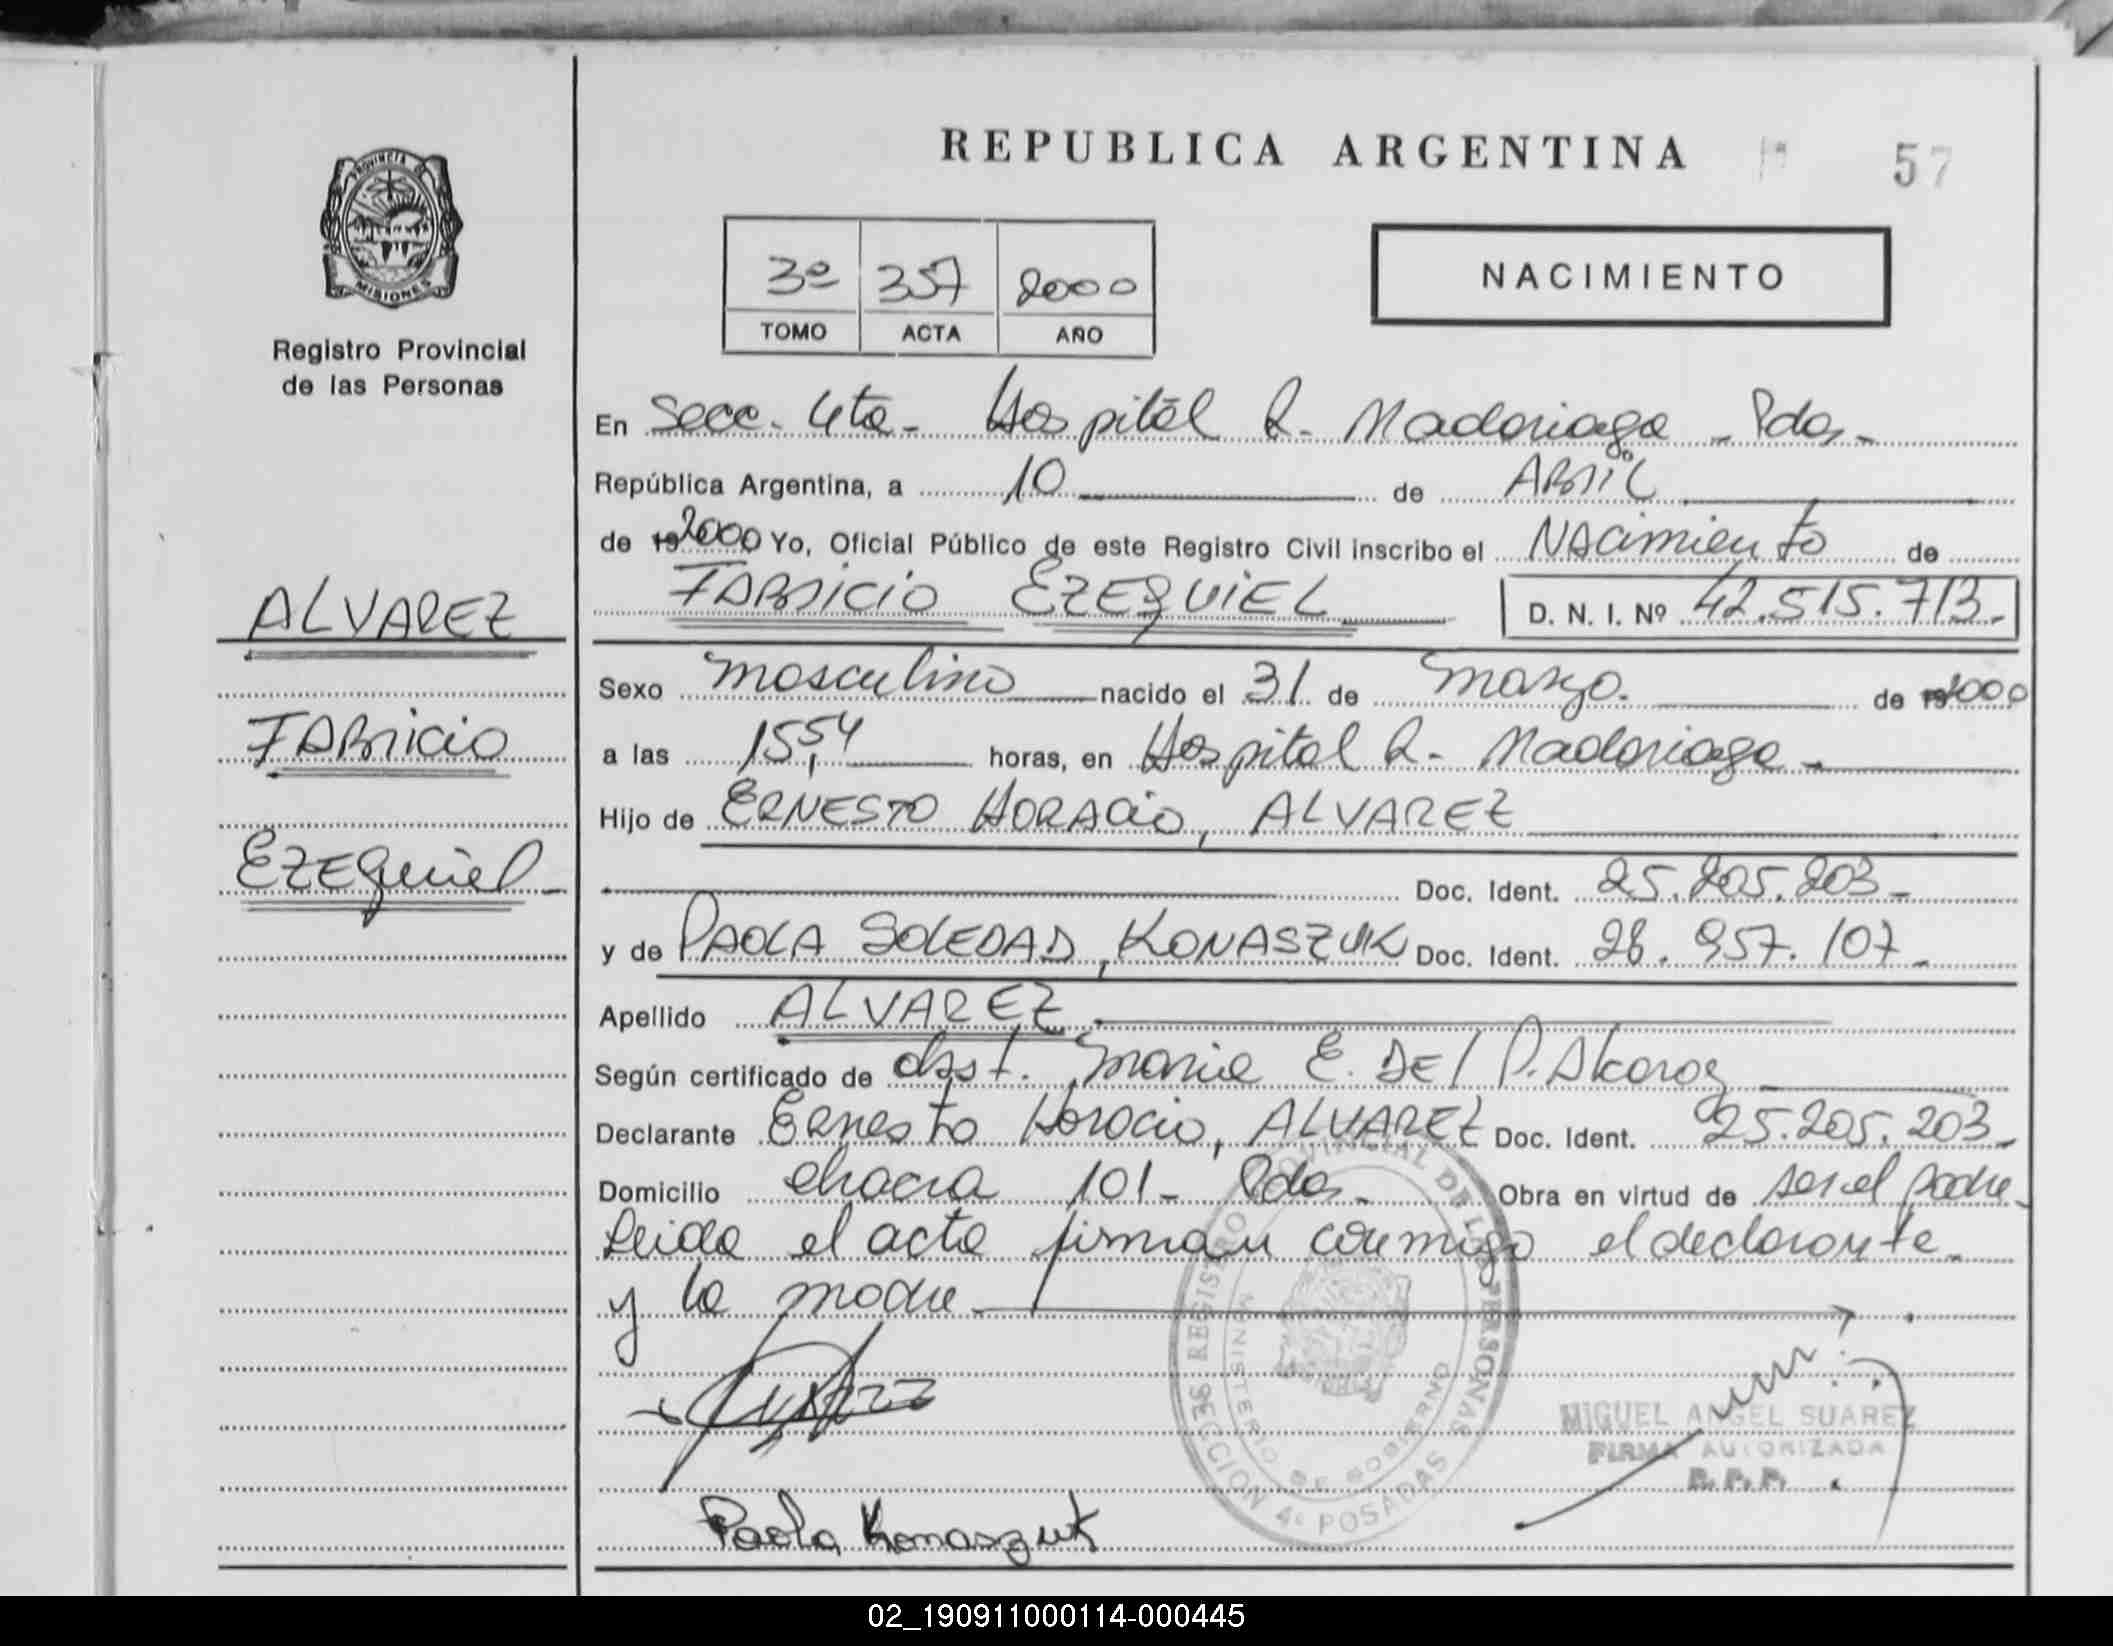 REPUBLICA ARGENTINA
57
PROVINCIA DE
MISIONES
Registro Provincial
de las Personas
3º 357 2000
TOMO ACTA AÑO
NACIMIENTO
En Secc. 4ta - Hospital R. Madariaga - Pdas -
República Argentina, a 10 de ABRIL
de 19 2000 Yo, Oficial Público de este Registro Civil inscribo el NAcimiento de
FABRICIO EZEQUIEL D. N. I. Nº 42.515.713.-
ALVAREZ
FABRICIO
EZEQuiel -
Sexo masculino nacido el 31 de marzo. de 19 2000
a las 15,54 horas, en Hospital R. Madariaga -
Hijo de ERNESTO HORACIO, ALVAREZ
Doc. Ident. 25.205.203 -
y de PAOLA SOLEDAD, KONASZUK Doc. Ident. 28.957.107 -
Apellido ALVAREZ
Según certificado de obst. Maria E. DEl P.
Declarante Ernesto Horacio, ALVAREZ Doc. Ident. 25.205.203 -
Domicilio chacra 101 - Pdas - Obra en virtud de ser el padre -
Leida el acta firman conmigo el declarante -
y la madre -
REGISTRO PROVINCIAL DE LAS PERSONAS
SECCION 4ª POSADAS
MINISTERIO DE GOBIERNO
MIGUEL ANGEL SUAREZ
FIRMA AUTORIZADA
R. P. P.
Paola Konaszuk
02_190911000114-000445